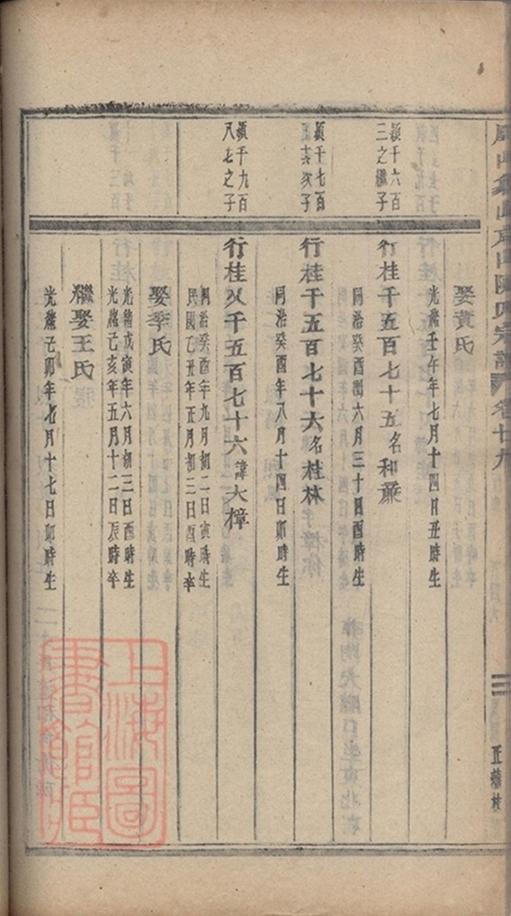 宗譜 卷十九
娶黃氏
光緒壬午年七月十四日丑時生
穎千六百
三之繼子
行桂千五百七十五名和蕭
同治癸酉閏六月三十日酉時生
穎千七百
行桂千五百七十六名桂林
同治癸酉年八月十四日卯時生
穎千九百
八七之子
行桂又千五百七十六諱大樟
同治癸酉年九月初二日寅時生
民國乙丑年五月初三日酉時卒
娶李氏
光緒戊寅年六月初三日酉時生
光緒己亥年五月十二日辰時卒
繼娶王氏
光緒己卯年七月十七日卯時生
上海圖
書館